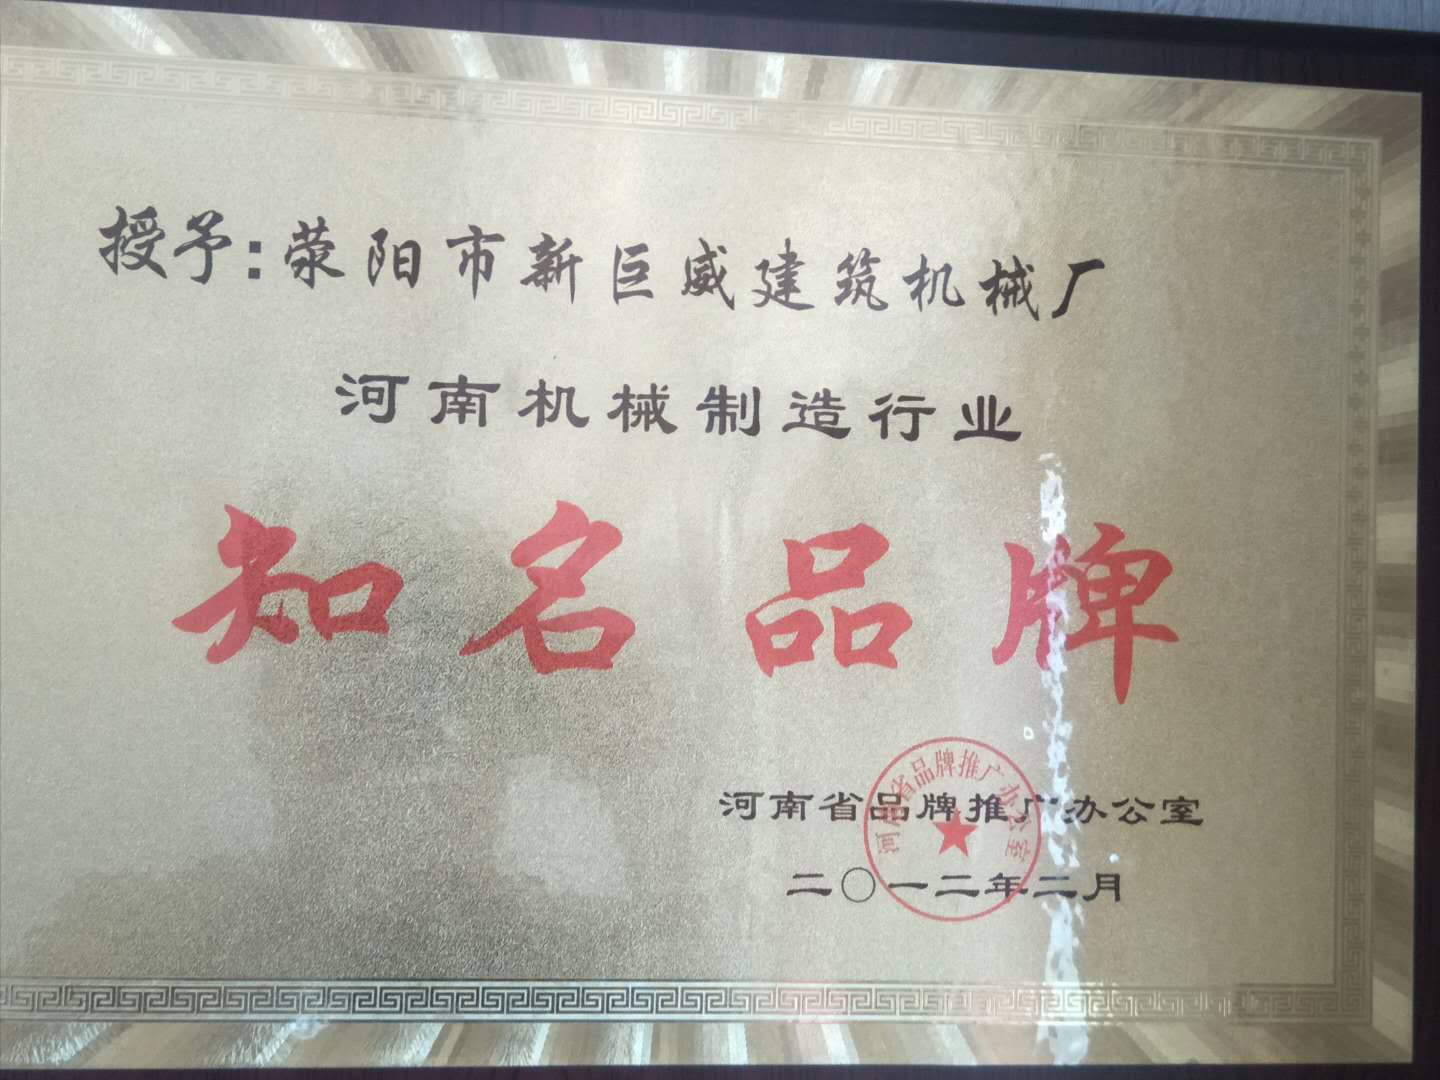 授予:荥阳市新巨威建筑机械厂
河南机械制造行业
知名品牌
河南省品牌推广办公室
二〇一二年二月
河南省品牌推广办公室